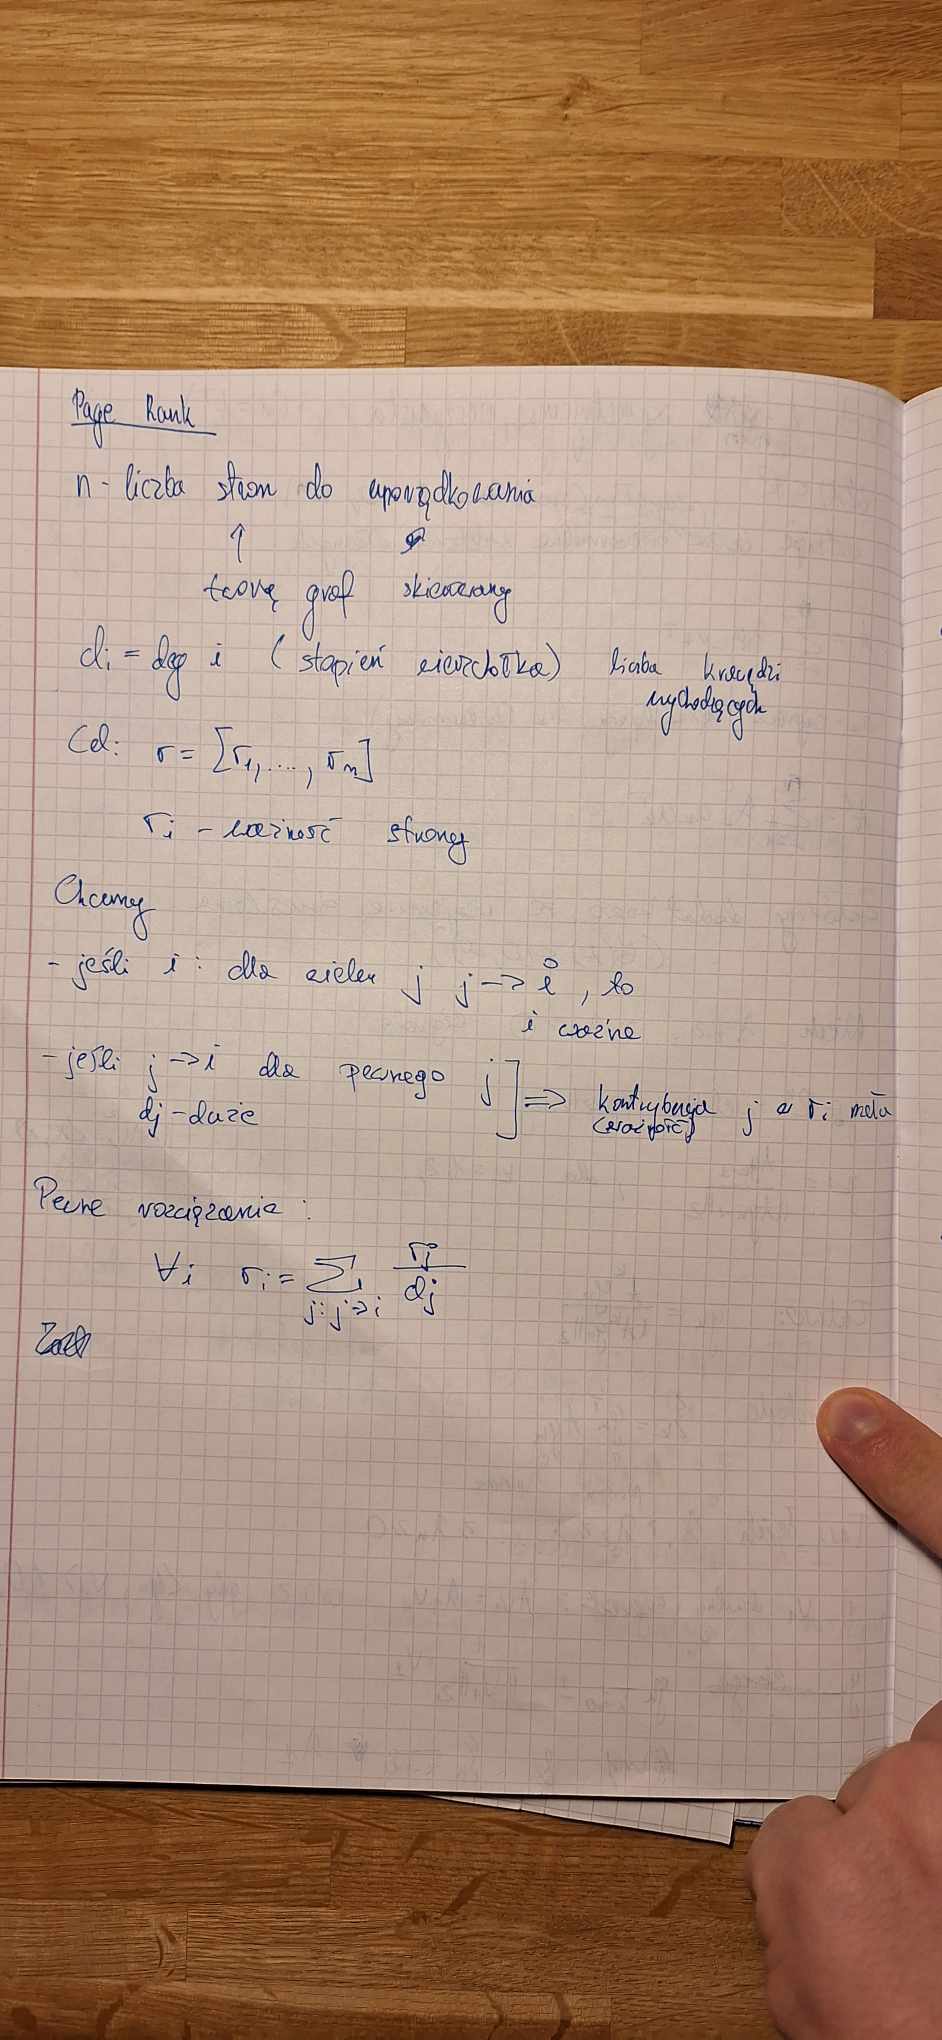 Page Rank
n - liczba stron do uporządkowania
↑
tworzą graf skierowany
di = deg i (stopień wierzchołka) liczba krawędzi
wychodzących
Cel: r = [r1, ..., rn]
ri - ważność strony
Chcemy
- jeśli i : dla wielu j j -> i , to
i ważne
- jeśli j -> i dla pewnego j ] => kontrybucja j w ri mała
dj - duże (ważność)
Pewne rozwiązanie :
∀i ri = ∑ j: j->i rj/dj